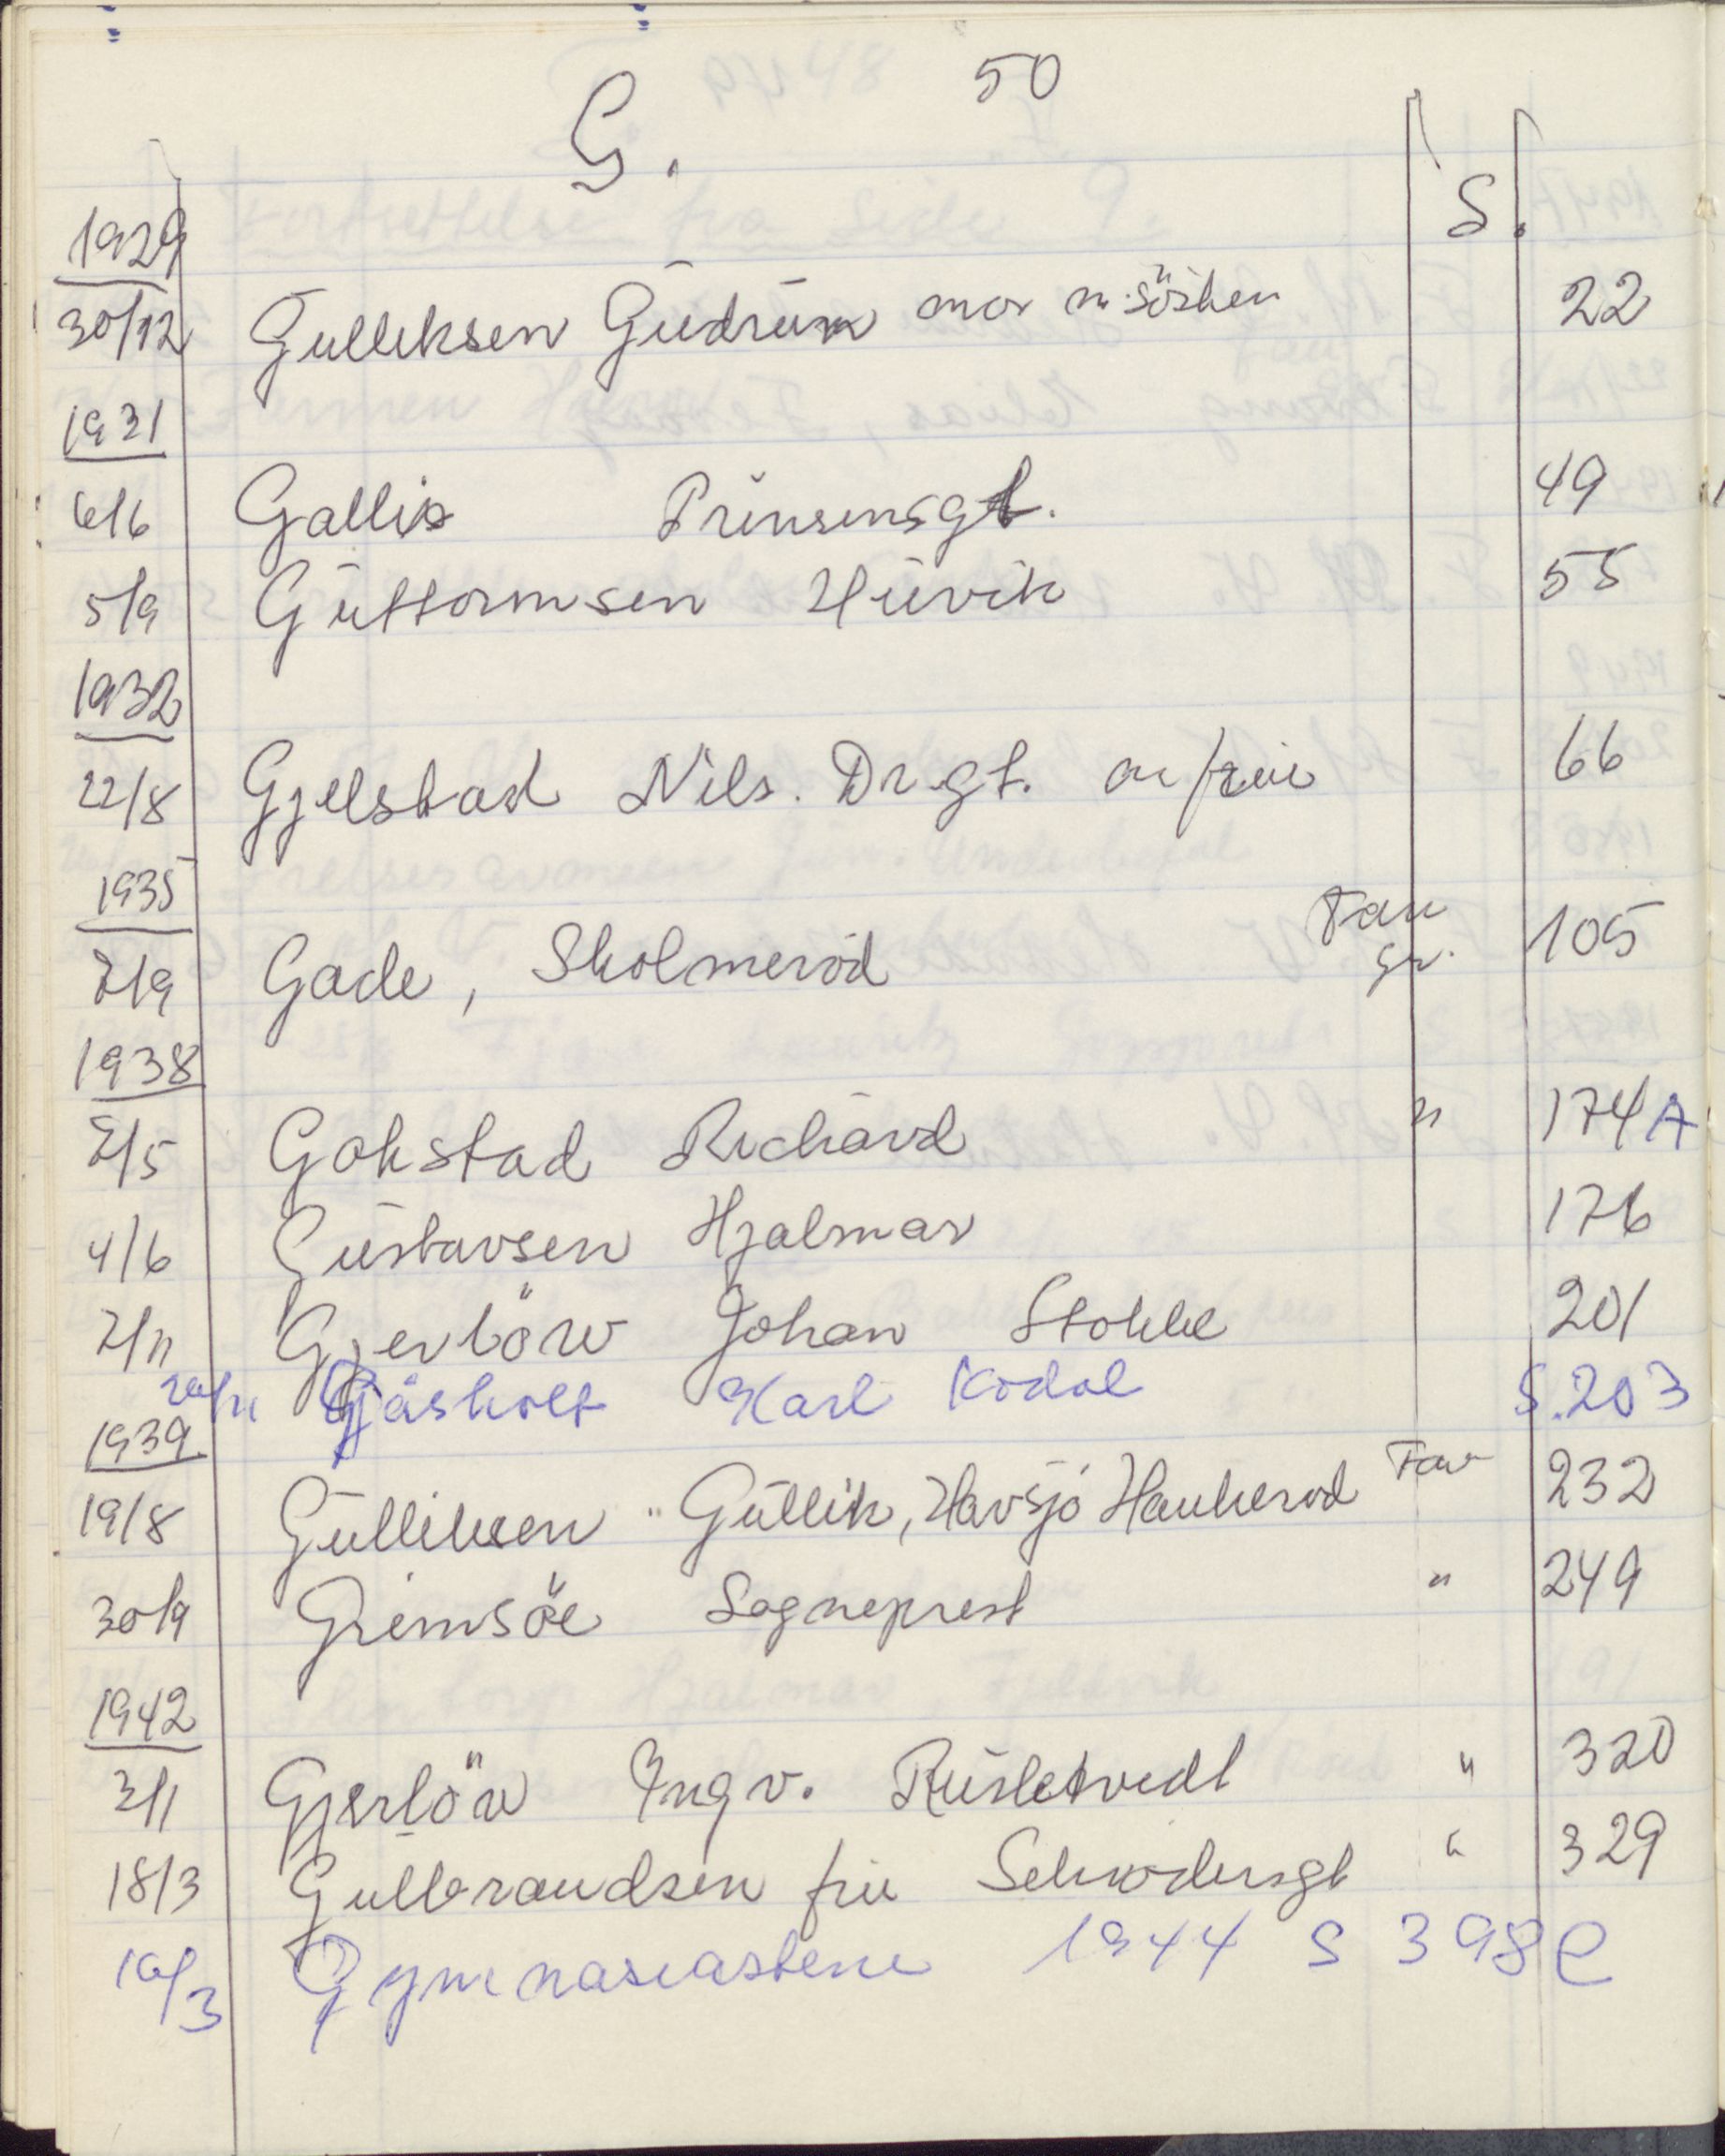 50
G.
S.
1929
30/12 Gulliksen Gudrun mor m. söster 22
1931
6/6 Gallis Prinsensgt. 49
5/9 Guttormsen Huvik 55
1932
22/8 Gjelstad Nils. Dr.gt. m/frue 66
1935 Fam
2/9 Gade, Skolmeröd gr. 105
1938
2/5 Gokstad Richard " 174A
4/6 Gustavsen Hjalmar 176
2/11 Gjerlöw Johan Stokke 201
Gjåsholt Karl Kodal S.203
1939
19/8 Gulliksen Gullik, Havsjö Haukerød Fam 232
30/9 Grimsöe Sogneprest " 249
1942
2/1 Gjerlöw Ingv. Rusletvedt " 320
18/3 Gulbrandsen fru Schrødersgt " 329
Gymnasiastene 1944 S 398 C